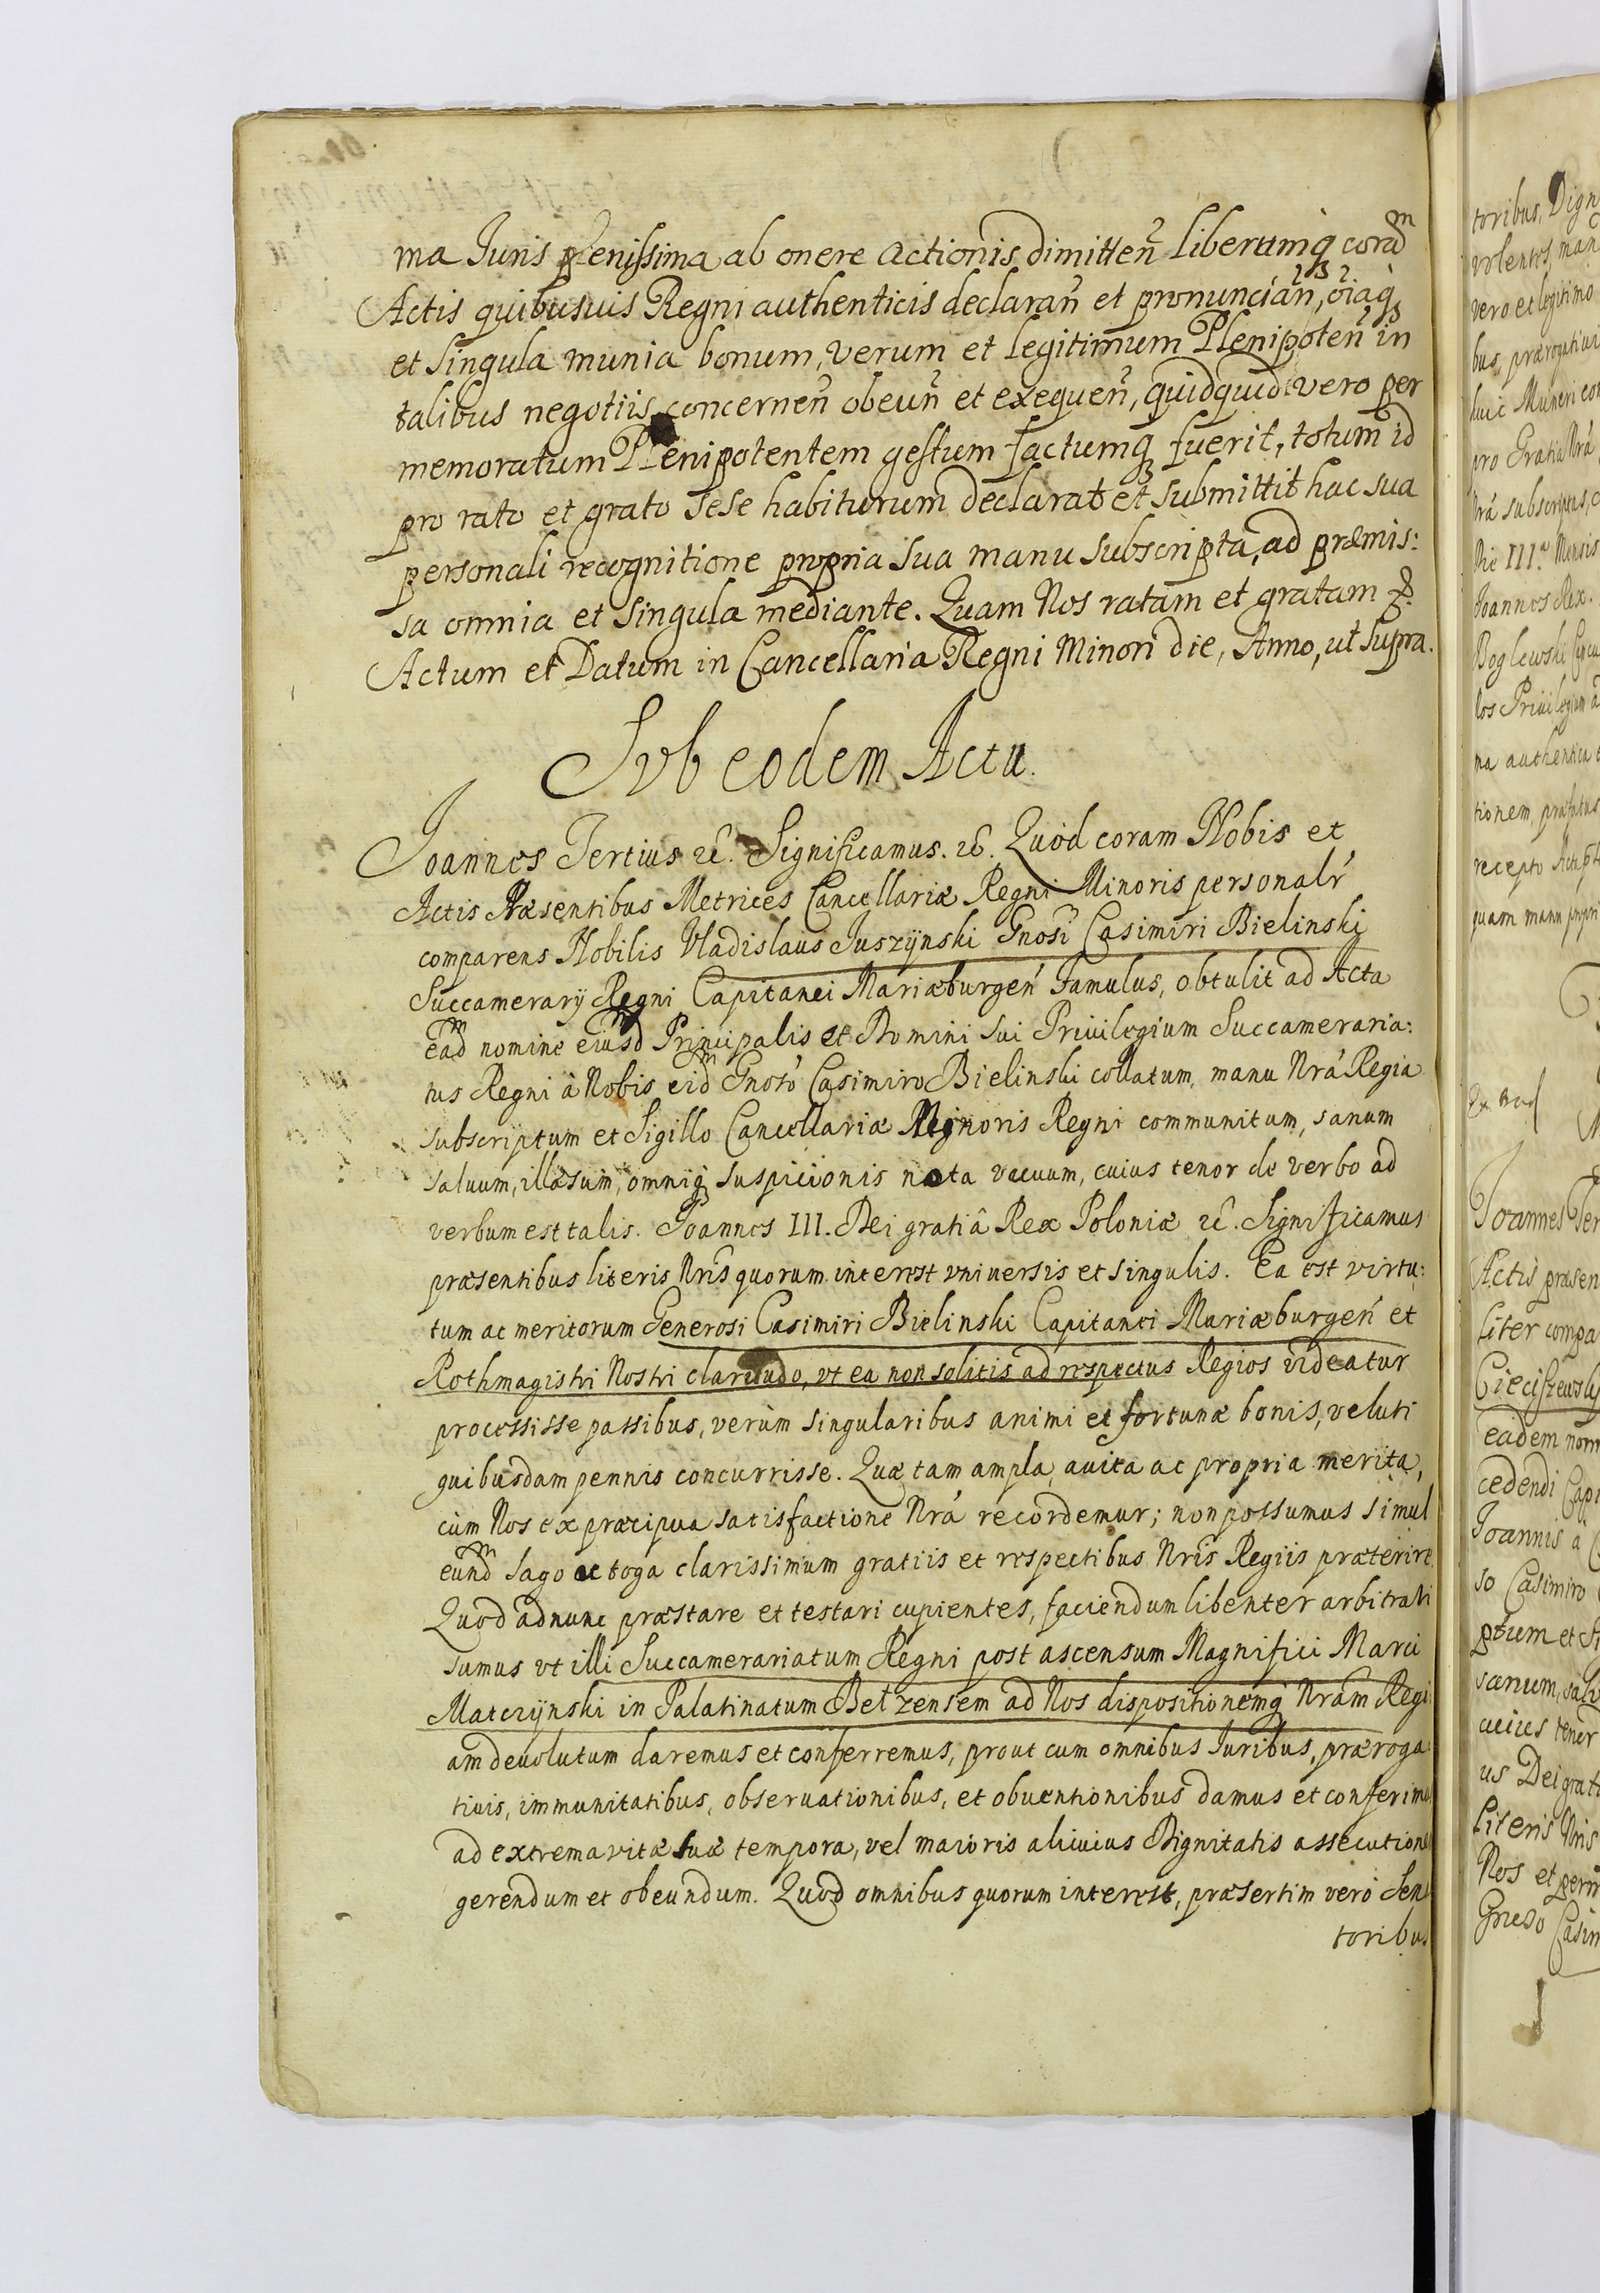 ma Juris plenissima ab onere actionis dimitteñ liberumq̃ coraᵐd
Actis quibusuis Regni authenticis declarañ et pronunciañ, oiaq̃
et singula munia bonum, verum et legitimum Plenipoteñ in
talibus negotiis concerneñ obeuñ et exequeñ, quidquid vero per
memoratum Plenipotentem gestum factumq̃ fuerit, totum id
pro rato et grato sese habiturum declarat et submittit hac sua
personali recognitione propria sua manu subscripta, ad præmis:
sa omnia et singula mediante. Quam Nos ratam et gratam
Actum et Datum in Cancellaria Regni Minori die, Anno, ut supra.
Svb eodem Actu.
Joannes Tertius etc̃. Significamus. etc̃. Quod coram Nobis et
Actis Præsentibus Metrices Cancellariæ Regni Minoris personalr̃
comparens Nobilis Vladislaus Juszÿnski Gnosi Casimiri Bielinski
Succamerarÿ Regni Capitanei Mariæburgeń Famulus, obtulit ad Acta
eaᵐd nomine eiusᵐd Principalis et Domini sui Priuilegium Succameraria:
tus Regni à Nobis eiᵐd Gnoso Casimiro Bielinski collatum, manu Nrá Regia
subscriptum et Sigillo Cancellariæ Minoris Regni communitum, sanum
saluum, illæsum, omniq̃ suspicionis nota vacuum, cuius tenor de verbo ad
verbum est talis. Joannes III. Dei gratiâ Rex Poloniæ etc̃. Significamus
præsentibus literis Nris̃ quorum interest vniuersis et singulis. Ea est virtu:
tum ac meritorum Generosi Casimiri Bielinski Capitanei Mariæburgeń et
Rothmagistri Nostri claritudo, vt ea non solitis ad respectus Regios videatur
processisse passibus, verùm singularibus animi et fortunæ bonis, veluti
quibusdam pennis concurrisse. Quæ tam ampla auita ac propria merita,
cùm Nos ex præcipua satisfactione Nrá recordemur; non possumus simul
eunᵐd sago ac toga clarissimum gratiis et respectibus Nris̃ Regiis præterire
Quod ad nunc præstare et testari cupientes, faciendum libenter arbitrati
sumus vt illi Succamerariatum Regni post ascensum Magnifici Marci
Matczÿnski in Palatinatum Belzensem ad Nos dispositionemq̃ Nrãm Regi
am deuolutum daremus et conferremus, prout cum omnibus Juribus, præroga:
tiuis, immunitatibus, obseruationibus, et obuentionibus damus et conferimu
ad extrema vitæ suæ tempora, vel maioris alicuius Dignitatis assecutione
gerendum et obeundum. Quod omnibus quorum interest, præsertim verò Sena
toribus
toribus, Dign
volentes, man
vero et legitimo
bus, prærogatiui
huic Muneri con
pro Gratia Nrá
Nrá subscripsis,
Die III. Mensis
Joannes Rex.
Boglewski
los Priuilegium a
ma authentica
tionem, præfatus
recepto
quam manu propri
Joannes Ter
Actis præsen
liter compa
Cieciszewsk
eadem nom
cedendi Capi
Joannis à
so Casimiro
ptum et Si
sanum, salv
cuius tenor
us Dei grati
Literis Nris
Nos et
Gnoso Casim